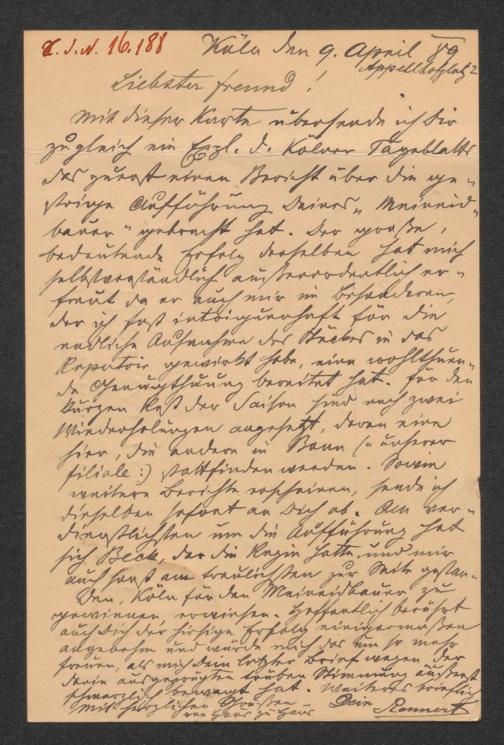 Z. I. N. 16.188
Köln den 9. April 89
Appellhofplatz 2
Liebster Freund!
Mit dieser Karte übersende ich Dir
zugleich ein Expl. d. Kölner Tageblatts
das zuerst etwas Bericht über die ge-
strige Aufführung Deines "Meineid-
bauer" gebracht hat. Der große,
bedeutende Erfolg desselben hat mich
selbstverständlich außerordentlich er-
freut da er auch mir im Besonderen,
der ich fast für die
endliche Aufnahme des Stückes in das
Repertoir gewirkt habe, eine wohlthuen-
de Genugthuung bereitet hat. Für den
kurzen Rest der Saison sind noch zwei
Wiederholungen angesetzt, deren eine
hier, die andere in Bonn (unserer
Filiale:) stattfinden werden. Sowie
weitere Berichte erscheinen, sende ich
dieselben sofort an Dich ab. Am ver-
dienstlichsten um die Aufführung hat
sich Beck, der die Regie hatte und mir
auch sonst am treulichsten zur Seite gestan-
den, Köln für den Meineidbauer zu
gewinnen, erwiesen. Hoffentlich berührt
auch Dich der hiesige Erfolg einigermaßen
angenehm und würde mich das um so mehr
freuen, als mich Dein letzter Brief wegen der
darin ausgeprägten trüben Stimmung äußerst
schmerzlich bewegt hat. Weiteres brieflich
Mit herzlichen Grüssen Dein
von Haus zu Haus Rennert